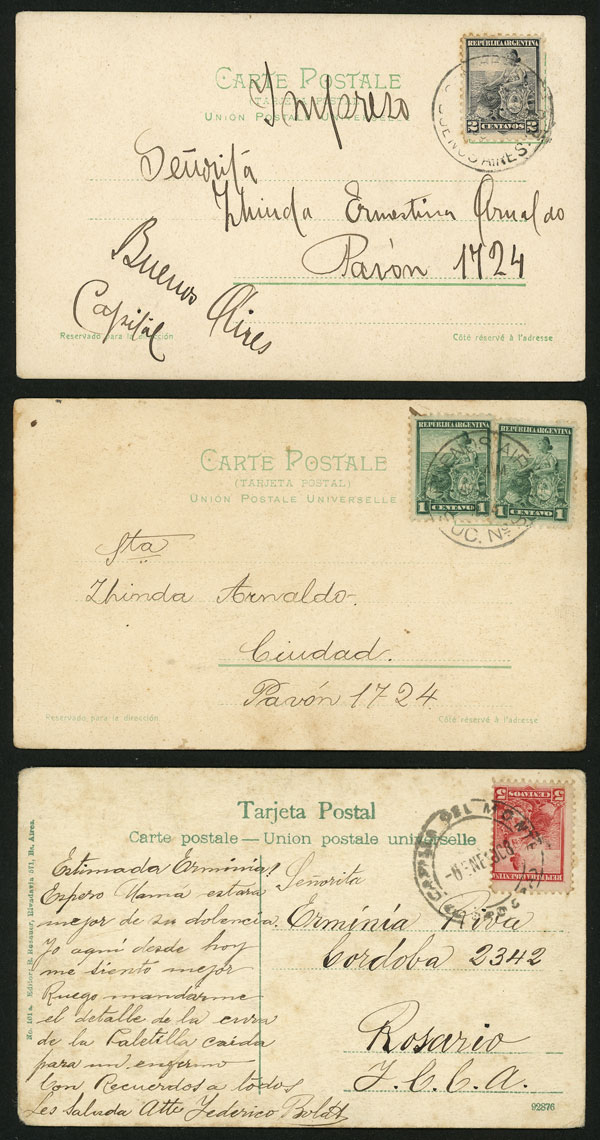 REPUBLICA ARGENTINA
2 CENTAVOS 2
BUENOS AIRES
CARTE POSTALE
UNION POSTALE UNIVERSELLE
Impreso
Señorita
Zhinda Ernestina Arnaldo
Pavón 1724
Buenos Aires
Capital
Reservado para la dirección
Côté réservé à l'adresse
REPUBLICA ARGENTINA
1 CENTAVO 1
REPUBLICA ARGENTINA
1 CENTAVO 1
BUENOS AIRES
SUC. No
CARTE POSTALE
(TARJETA POSTAL)
UNION POSTALE UNIVERSELLE
Sta
Zhinda Arnaldo.
Ciudad.
Pavón 1724.
Reservado para la dirección.
Côté réservé à l'adresse
5 CENTAVOS 5
REPUBLICA ARGENTINA
DEL MONTE
Tarjeta Postal
Carte postale — Union postale universelle
Estimada Erminia!
Espero Mamá estara
mejor de su dolencia.
Yo aquí desde hoy
me siento mejor
Ruego mandarme
el detalle de la cura
de la Paletilla caida
para un enfermo
Con Recuerdos a todos
Les Saluda Atte Federico Boldt
Señorita
Erminia Riva
Cordoba 2342
Rosario
F.C.C.A.
No. 101 a. Editor: R. Rosauer, Rivadavia 571, Bs. Aires.
92876